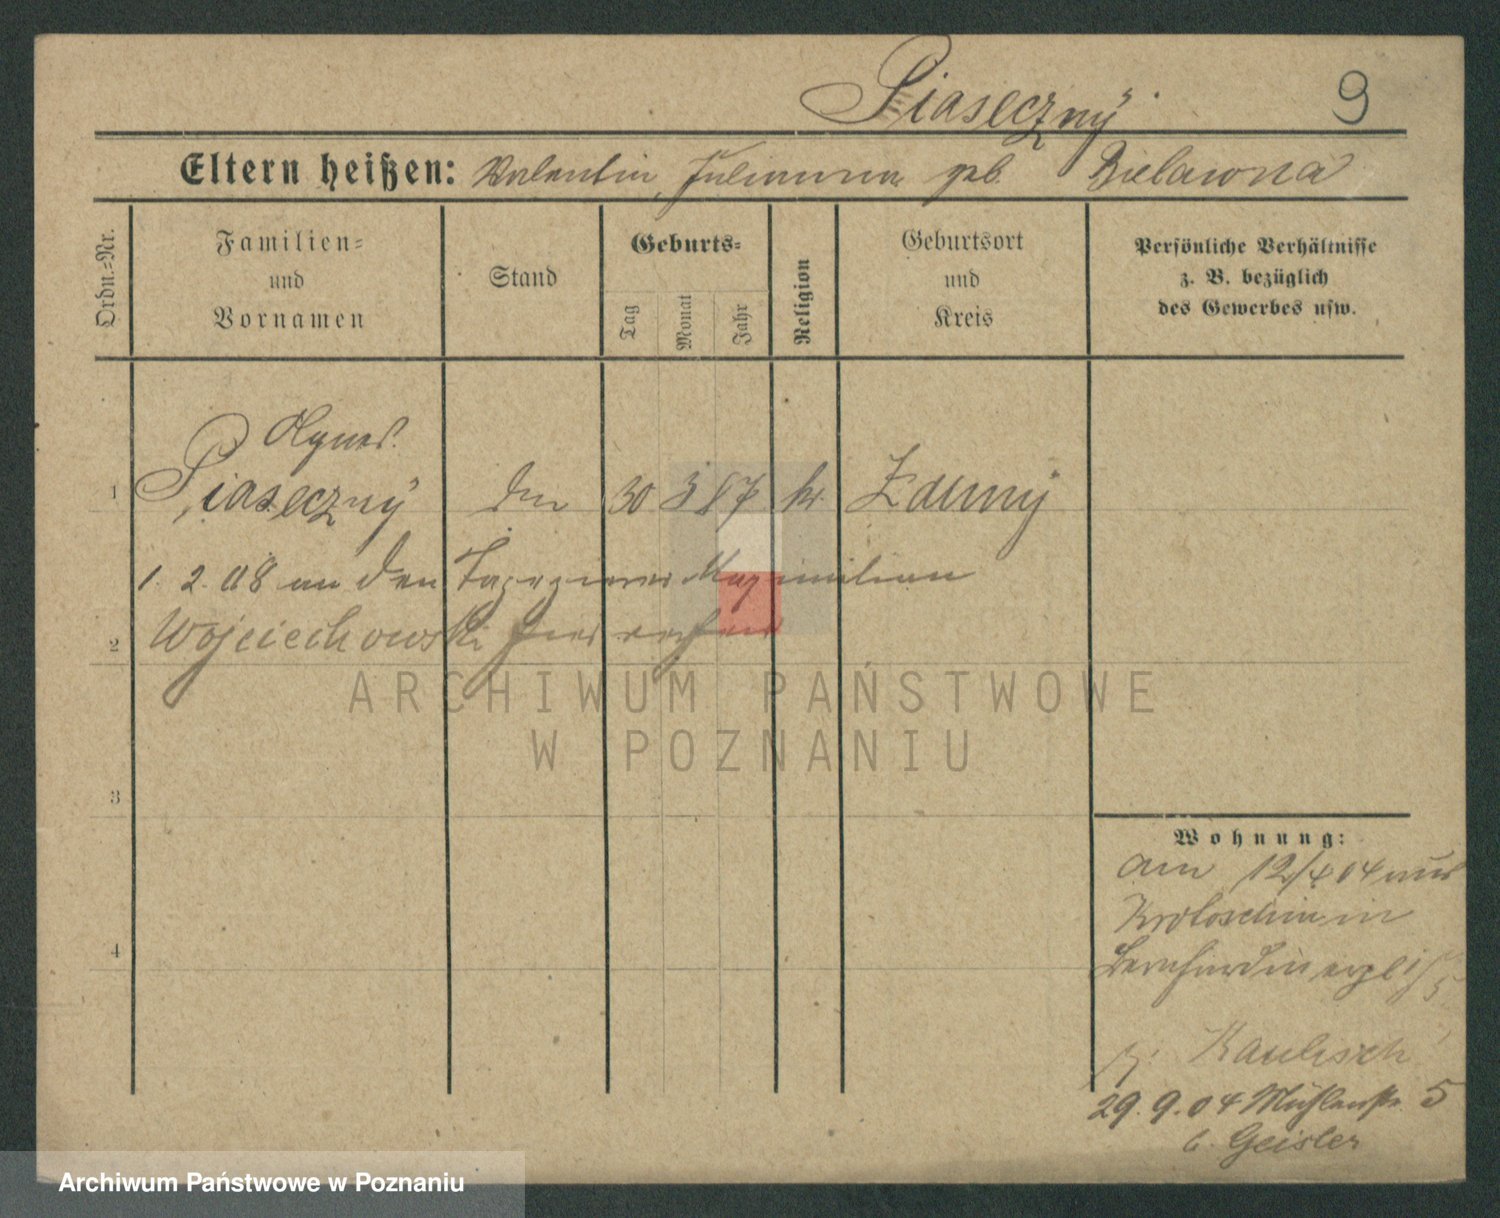 Piaseczny 9
Eltern heißen: Valentin, Julianna geb. Bielawna
Ordn.-Nr.
Familien-
und
Vornamen
Stand
Geburts-
Tag
Monat
Jahr
Religion
Geburtsort
und
Kreis
Persönliche Verhältnisse
z. B. bezüglich
des Gewerbes usw.
Agnes
1 Piaseczny 30 3 87 k. Zduny
1. 2. 08 an den Tapezierer Maximilian
2 Wojciechowski hier
3
4
Wohnung:
am 12/4 04 aus
Krotoschin in
Bernhardinerpl 1/5
Kaulisch
29. 9. 04 Mühlenstr 5
b. Geisler
ARCHIWUM PAŃSTWOWE
W POZNANIU
Archiwum Państwowe w Poznaniu